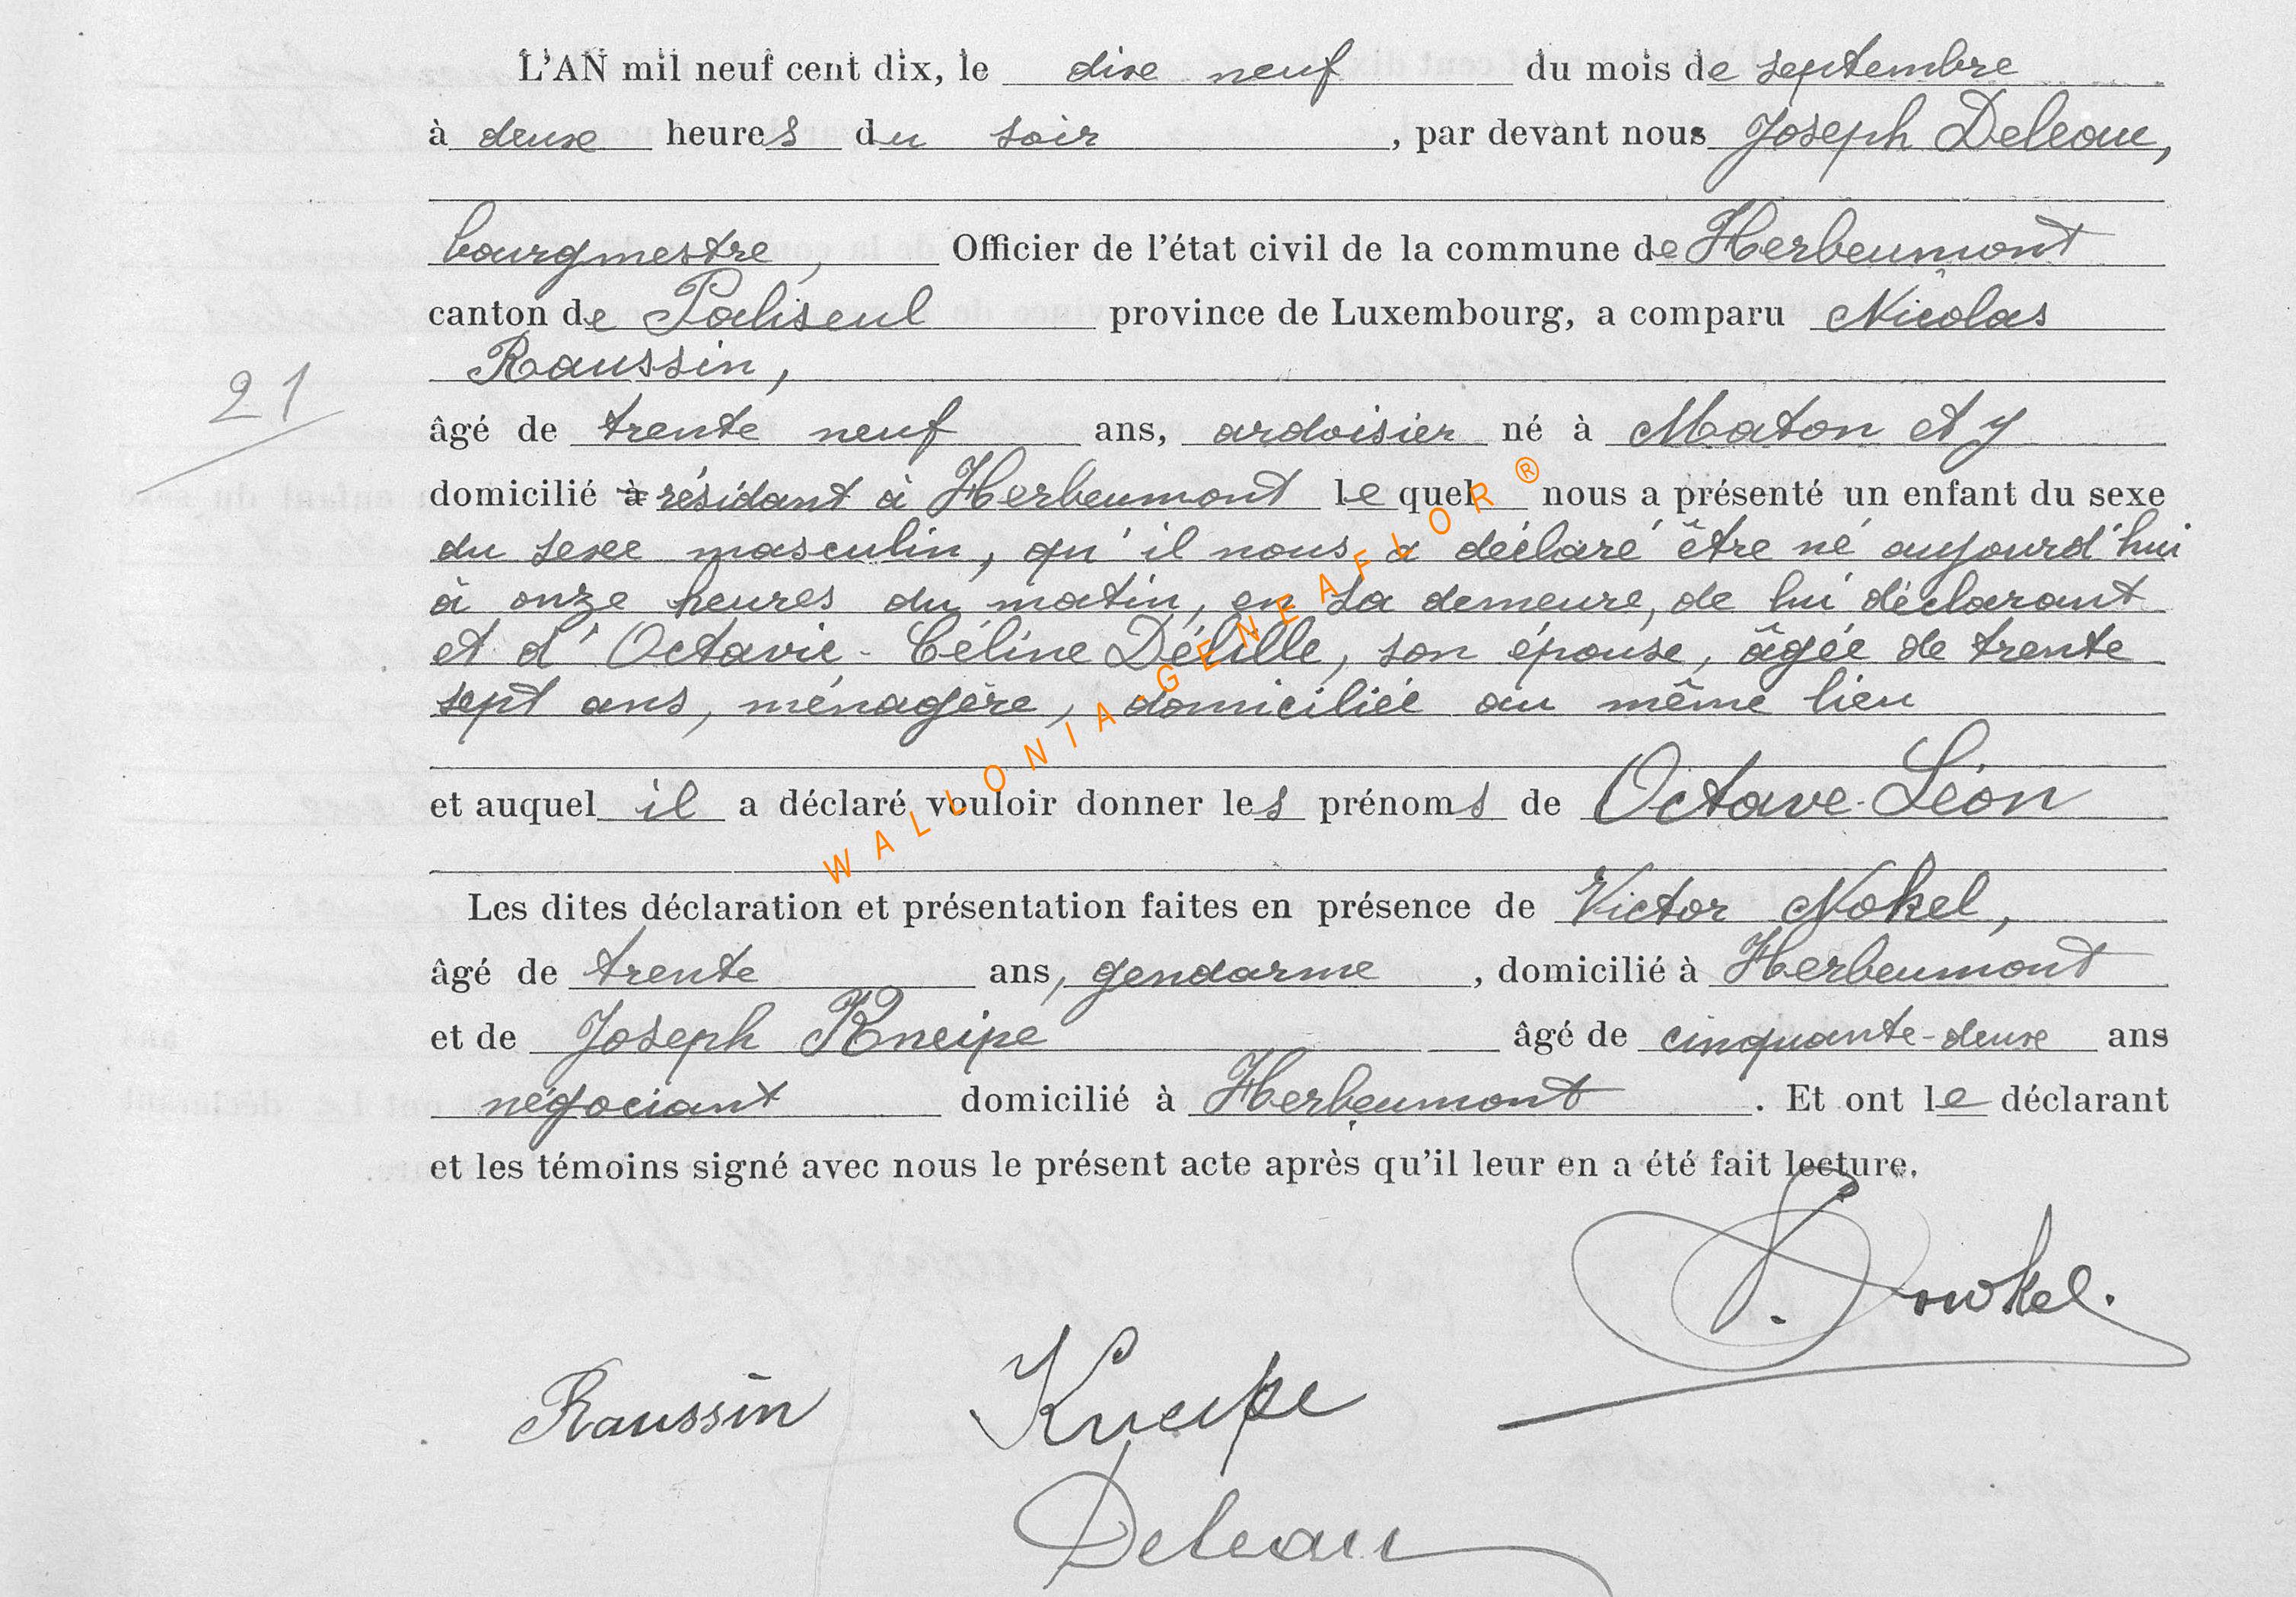 L'AN mil neuf cent dix, le dixe neuf du mois de septembre
à deuxe heures du soir, par devant nous Joseph Deleau,
bourgmestre, Officier de l'état civil de la commune de Herbeumont
canton de Paliseul province de Luxembourg, a comparu Nicolas
Raussin,
21
âgé de trente neuf ans, ardoisier né à Maton et y
domicilié à résidant à Herbeumont le quel nous a présenté un enfant du sexe
du sexe masculin, qu'il nous a déclaré être né aujourd'hui
à onze heures du matin, en sa demeure, de lui déclarant
et d'Octavie-Céline Délille, son épouse, âgée de trente
sept ans, ménagère, domiciliée au même lieu
et auquel il a déclaré vouloir donner les prénoms de Octave-Léon
Les dites déclaration et présentation faites en présence de Victor Nokel,
âgé de trente ans, gendarme, domicilié à Herbeumont
et de Joseph Kneipe âgé de cinquante-deux ans
négociant domicilié à Herbeumont. Et ont le déclarant
et les témoins signé avec nous le présent acte après qu'il leur en a été fait lecture.
Raussin Kneipe
Deleau
WALLONIA-GENEAFLOR®